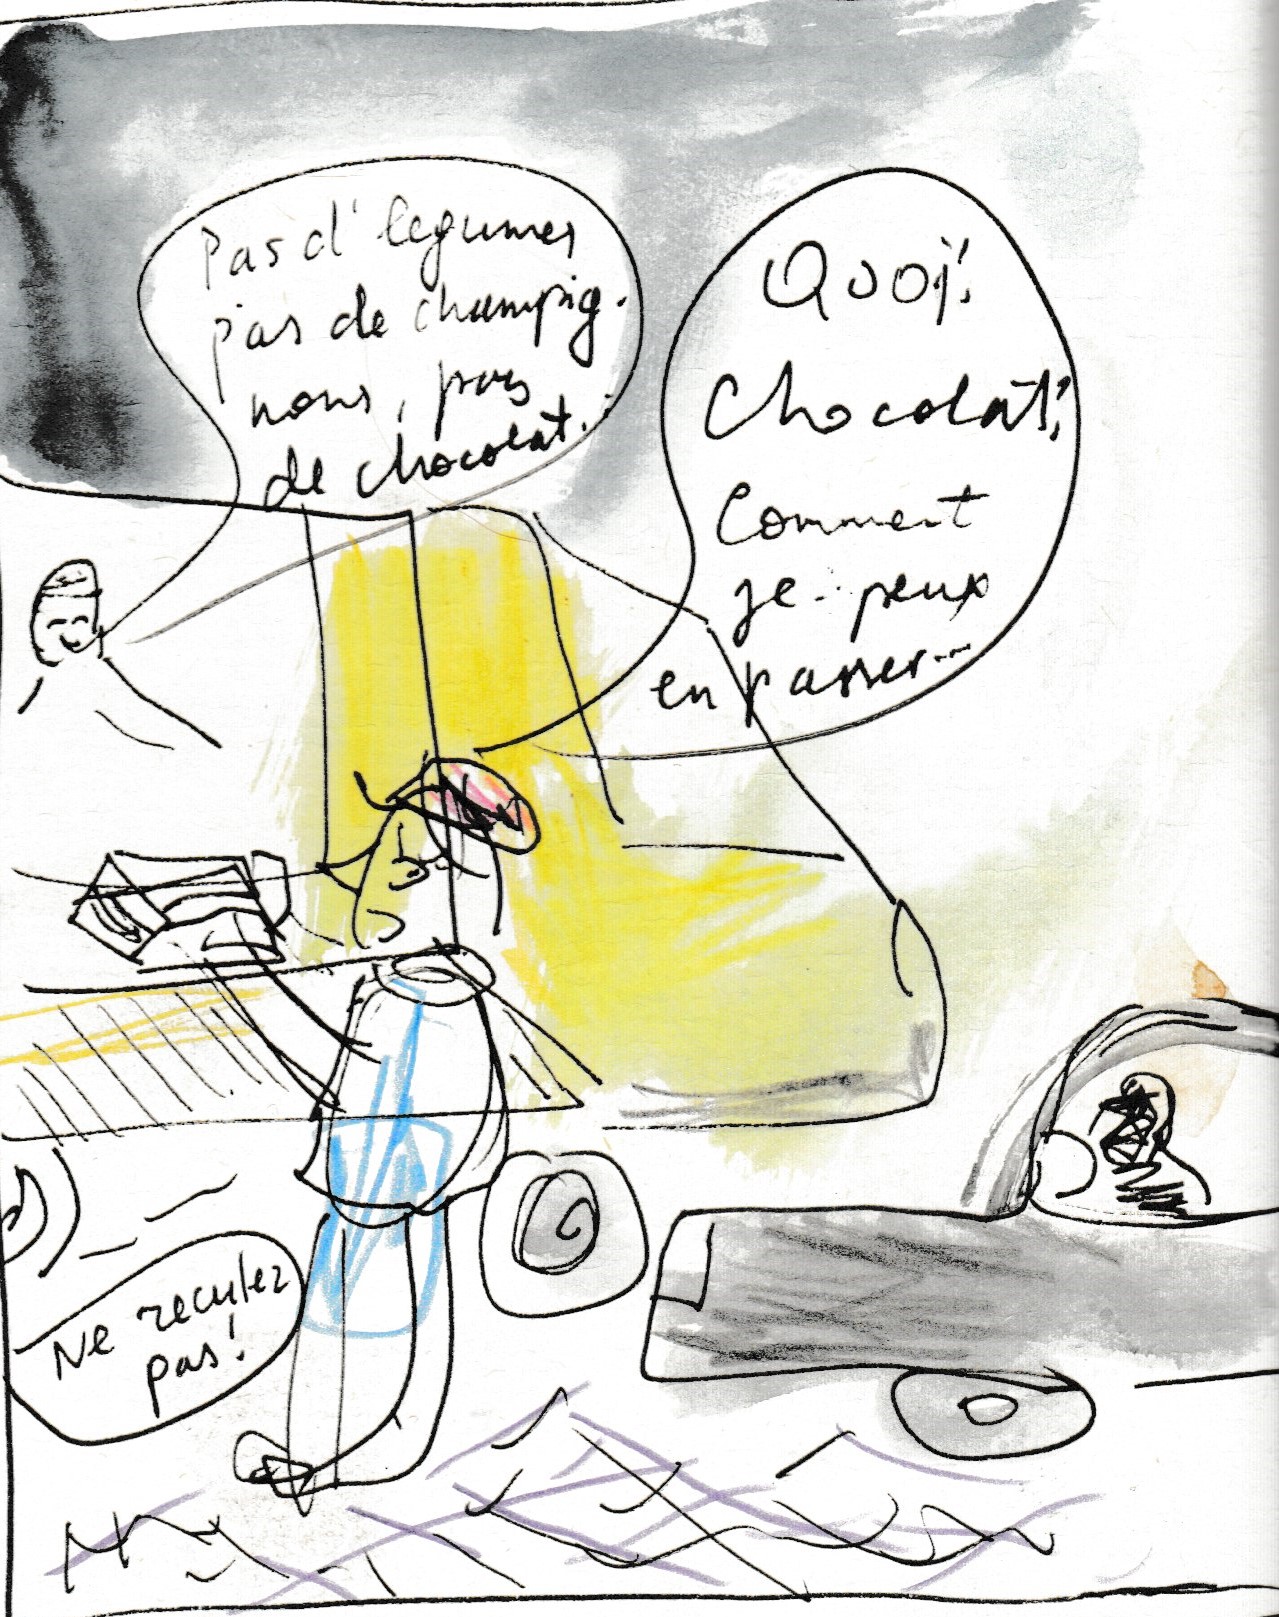 Pas d' legumes
pas de champig.
nons, pas
de chocolat.
Quoi!
Chocolat!
Comment
je.. peux
en passer...
Ne reculez
pas!